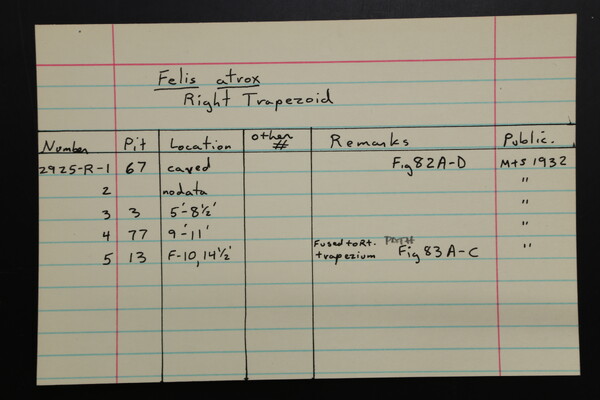 Felis atrox
Right Trapezoid
Number Pit Location other # Remarks Public.
2925-R-1 67 caved Fig 82A-D M+S 1932
2 nodata "
3 3 5'-8½' "
4 77 9'-11' "
5 13 F-10, 14½' Fused to Rt. trapezium Fig 83 A-C "